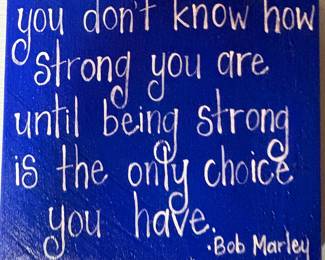 you don't know how
strong you are
until being strong
is the only choice
you have.
·Bob Marley